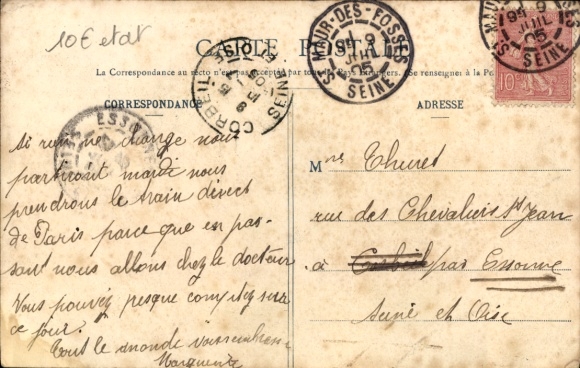 10€ etat
CARTE POSTALE
La Correspondance au recto n'est pas acceptée par tous les Pays Étrangers. (Se renseigner à la
CORRESPONDANCE
ADRESSE
ST MAUR-DES-FOSSÉS
9 JUIL 05
SEINE
ST MAUR-DES-FOSSÉS
9 JUIL 05
SEINE
10c
CORBEIL
SEINE ET OISE
ESSONNES
Si rien ne change nous
partirons mardi nous
prendrons le train direct
de Paris parce que en pas-
sant nous allons chez le docteur
Vous pouvez presque comptez sur
ce jour.
Tout le monde vous embrasse
Marguerite
Mme Thuret
rue des Chevaliers St Jean
à Corbeil par Essonne
Seine et Oise